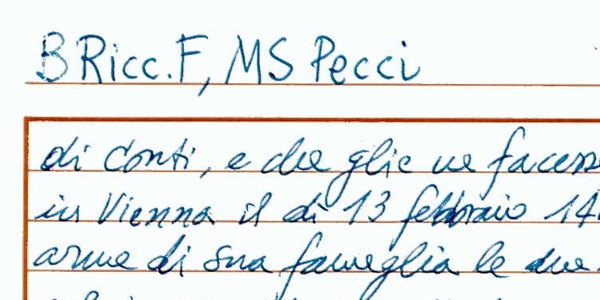 B Ricc. F, MS Pecci
di Conti, e che glie ne facess
in Vienna il dì 13 febbraio 14
arme di sua famiglia le due